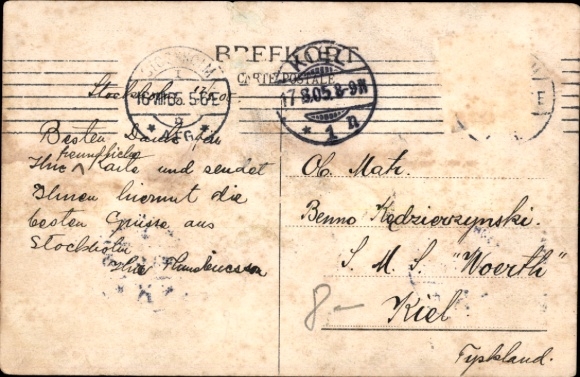 BREFKORT
CARTE POSTALE
STOCKHOLM
1
16 VIII 05. 5-6 E
KIEL
17.8.05.8-9N
* * 1 n
Stockholm
Besten Dank für
Ihre freundliche Karte und sendet
Ihnen hiermit die
besten Grüsse aus
Stockholm
Ihre
Ob. Matr.
Benno Kędzierzynski.
S. M. S. "Woerth"
Kiel
Tyskland.
8-